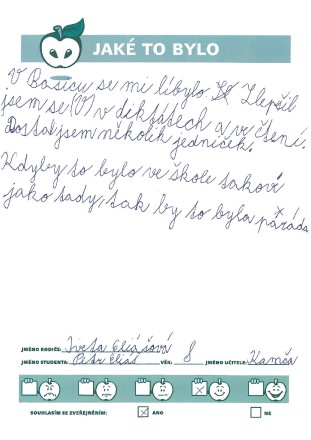 JAKÉ TO BYLO
V Basicu se mi líbylo. Zlepšil
jsem se (V) v diktátech a ve čtení.
Dostal jsem několik jedniček.
Kdyby to bylo ve škole takoví
jako tady, tak by to byla paráda
JMÉNO RODIČE: Iveta Eliášová
JMÉNO STUDENTA: Petr Eliáš VĚK: 8 JMÉNO UČITELE: Kamča
SOUHLASÍM SE ZVEŘEJNĚNÍM: ANO NE